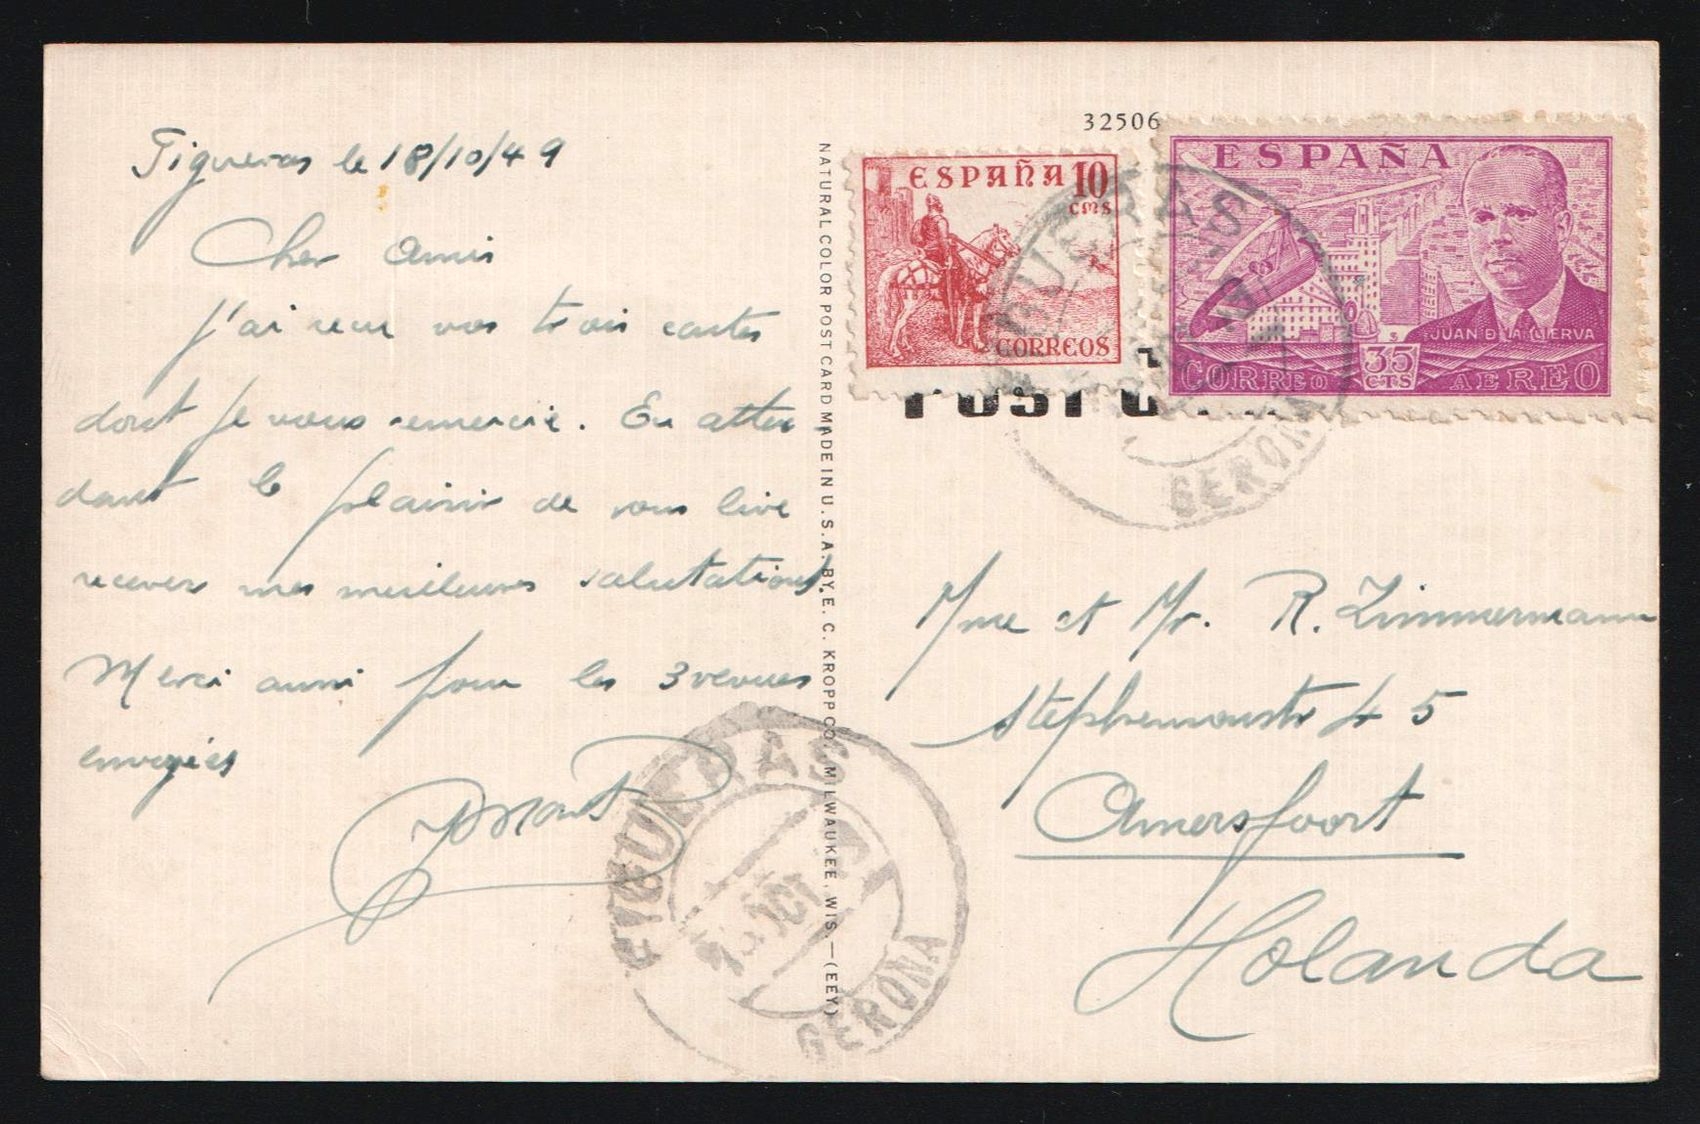 Figueras le 18/10/49
Cher Amis
J'ai recu vos trois cartes
dont je vous remercie. En atten
dant le plaisir de vous lire
recever mes meilleures salutations.
Merci aussi pour les 3 revues
envoyées
NATURAL COLOR POST CARD MADE IN U. S. A. BY E. C. KROPP CO., MILWAUKEE, WIS.—(EEY)
32506
ESPAÑA 10
cms
CORREOS
ESPAÑA
JUAN DE LA CIERVA
35
CTS
CORREO AEREO
POST
FIGUERAS
GERONA
Mme et Mr. R. Zimmermann
45
Amersfoort
Holanda
FIGUERAS
OCT
GERONA